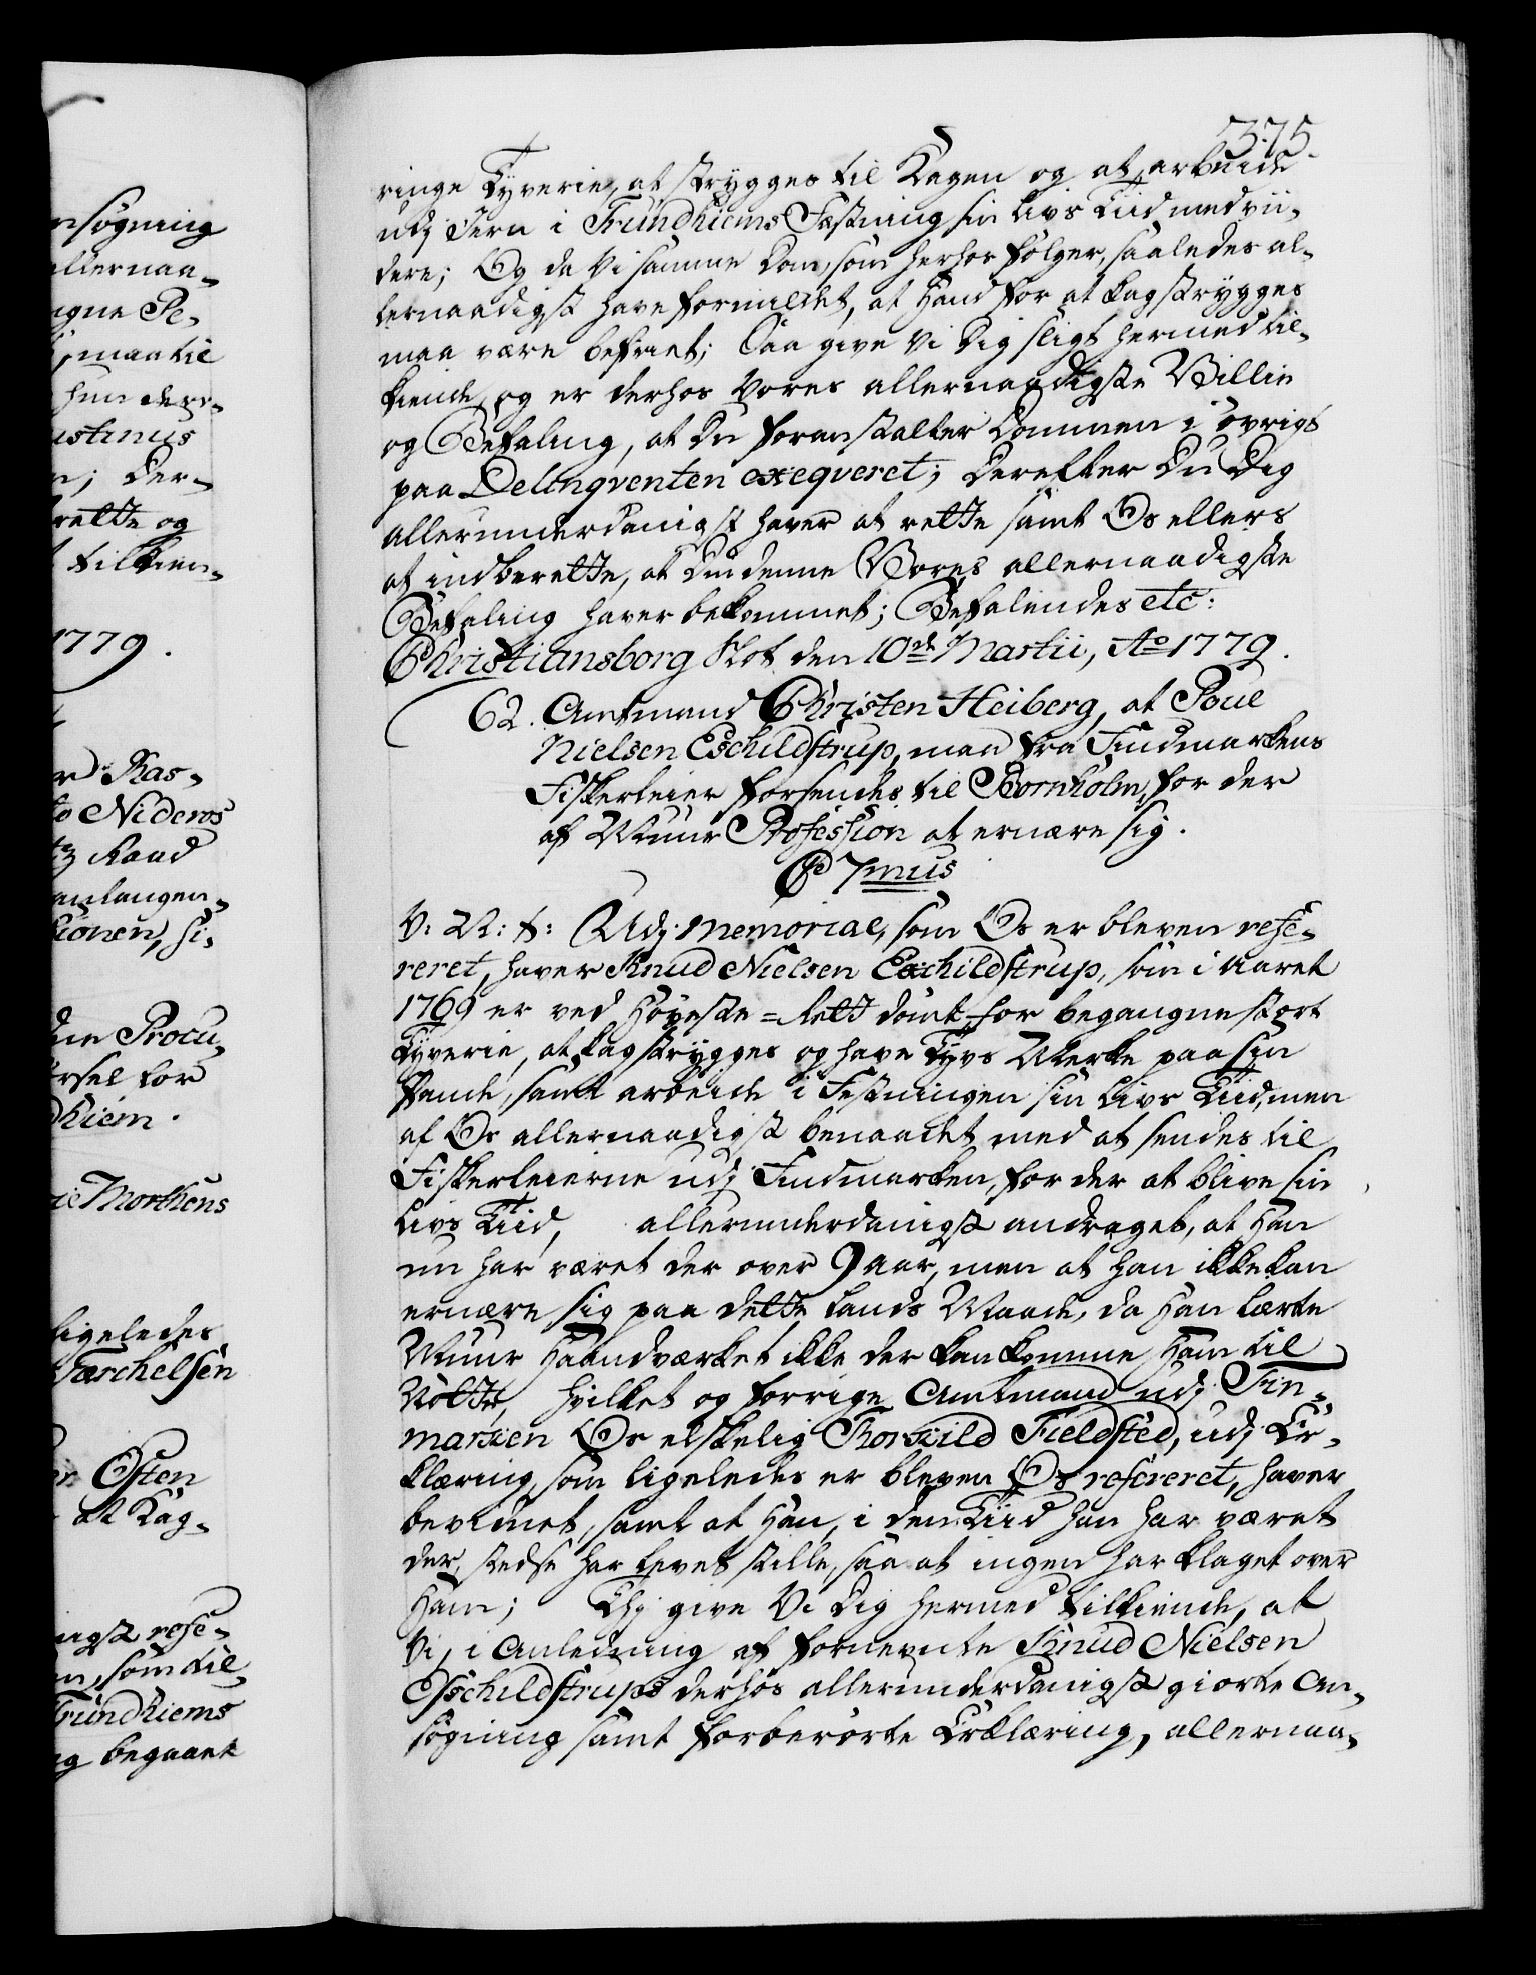 375.
ringe Tyverie, at strygges til Kagen og at arbeide
udj Jern i Trundhiems Fæstning sin Livs Tiid med vii-
dere; Og da Vi samme Dom, som herhos følger, saaledes al-
lernaadigst have formildet, at Hand for at kagstrygges
maa være befriet; Saa give Vi Dig sligt hermed til-
kiende, og er derhos Vores allernaadigste Villie
og Befaling, at Du foranstalter Dommen i øvrigt
paa Delinqventen exeqveret; Derefter Du Dig
allerunderdanigst haver at rette samt Os ellers
at indberette, at Du denne Vores allernaadigste
Befaling haver bekommet; Befalendes etc:
Christiansborg Slot den 10de Martii, Ao 1779.
62. Amtmand Christen Heiberg, at Poul
Nielsen Eschildstrup, maa fra Findmarkens
Fiskerleier forsendes til Bornholm, for der
af Muur Profession at ernære sig.
C 7mus
V: N: t: Udj Memorial, som Os er bleven refe-
reret, haver Knud Nielsen Eschildstrup, som i Aaret
1769 er ved Høyeste-Rett dømt for begangne stort
Tyverie, at kagstrygges og have Tyvs Merke paa sin
Pande, samt arbeide i Festningen sin Livs Tiid, men
af Os allernaadigst benaadet med at sendes til
Fiskerleierne udj Findmarken, for der at blive sin
Livs Tiid, allerunderdanigst andraget, at Han
nu har været der over 9 Aar, men at Han ikke kan
ernære sig paa dette Lands Maade, da Han lærte
Muur Haandværket ikke der kan komme Ham til
Nøtte, hvilket og forrige Amtmand udj Fin-
marken Os elskelig Thorkild Fieldsted, udj Er-
klæring, som ligeledes er bleven Os refereret, haver
bevidnet, samt at Han, i den Tiid han har været
der, stedse har levet stille, saa at ingen har klaget over
Ham; Thj give Vi Dig hermed tilkiende, at
Vi, i Anledning af fornevnte Knud Nielsen
Eschildstrups derhos allerunderdanigst giorte An-
søgning samt forberørte Erklæring, allernaa-